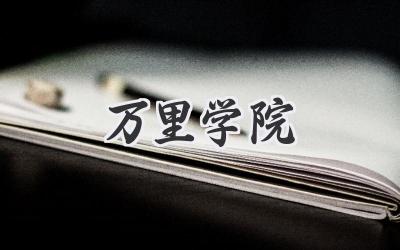 万里学院